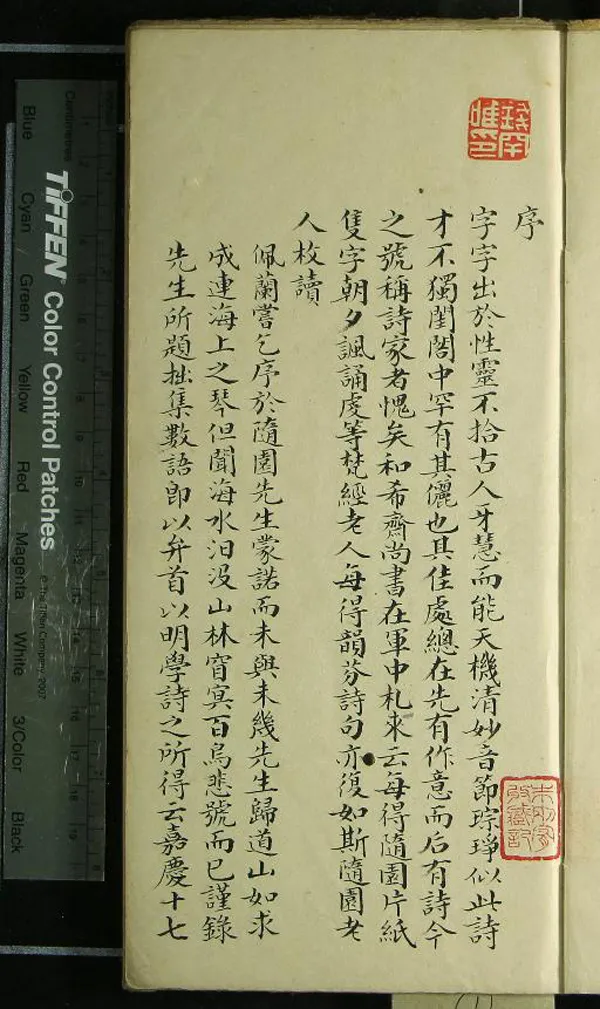 序
字字出於性靈不拾古人牙慧而能天機清妙音節琮琤似此詩
才不獨閨閣中罕有其儷也其佳處總在先有作意而后有詩今
之號稱詩家者愧矣和希齋尚書在軍中札來云每得隨園片紙
隻字朝夕諷誦虔等梵經老人每得韻芬詩句亦復如斯隨園老
人枚讀
佩蘭嘗乞序於隨園先生蒙諾而未與未幾先生歸道山如求
成連海上之琴但聞海水汩没山林窅冥百鳥悲號而已謹錄
先生所題拙集數語即以弁首以明學詩之所得云嘉慶十七
TIFFEN Color Control Patches
© The Tiffen Company, 2007
Centimetres
Blue
Cyan
Green
Yellow
Red
Magenta
White
3/Color
Black